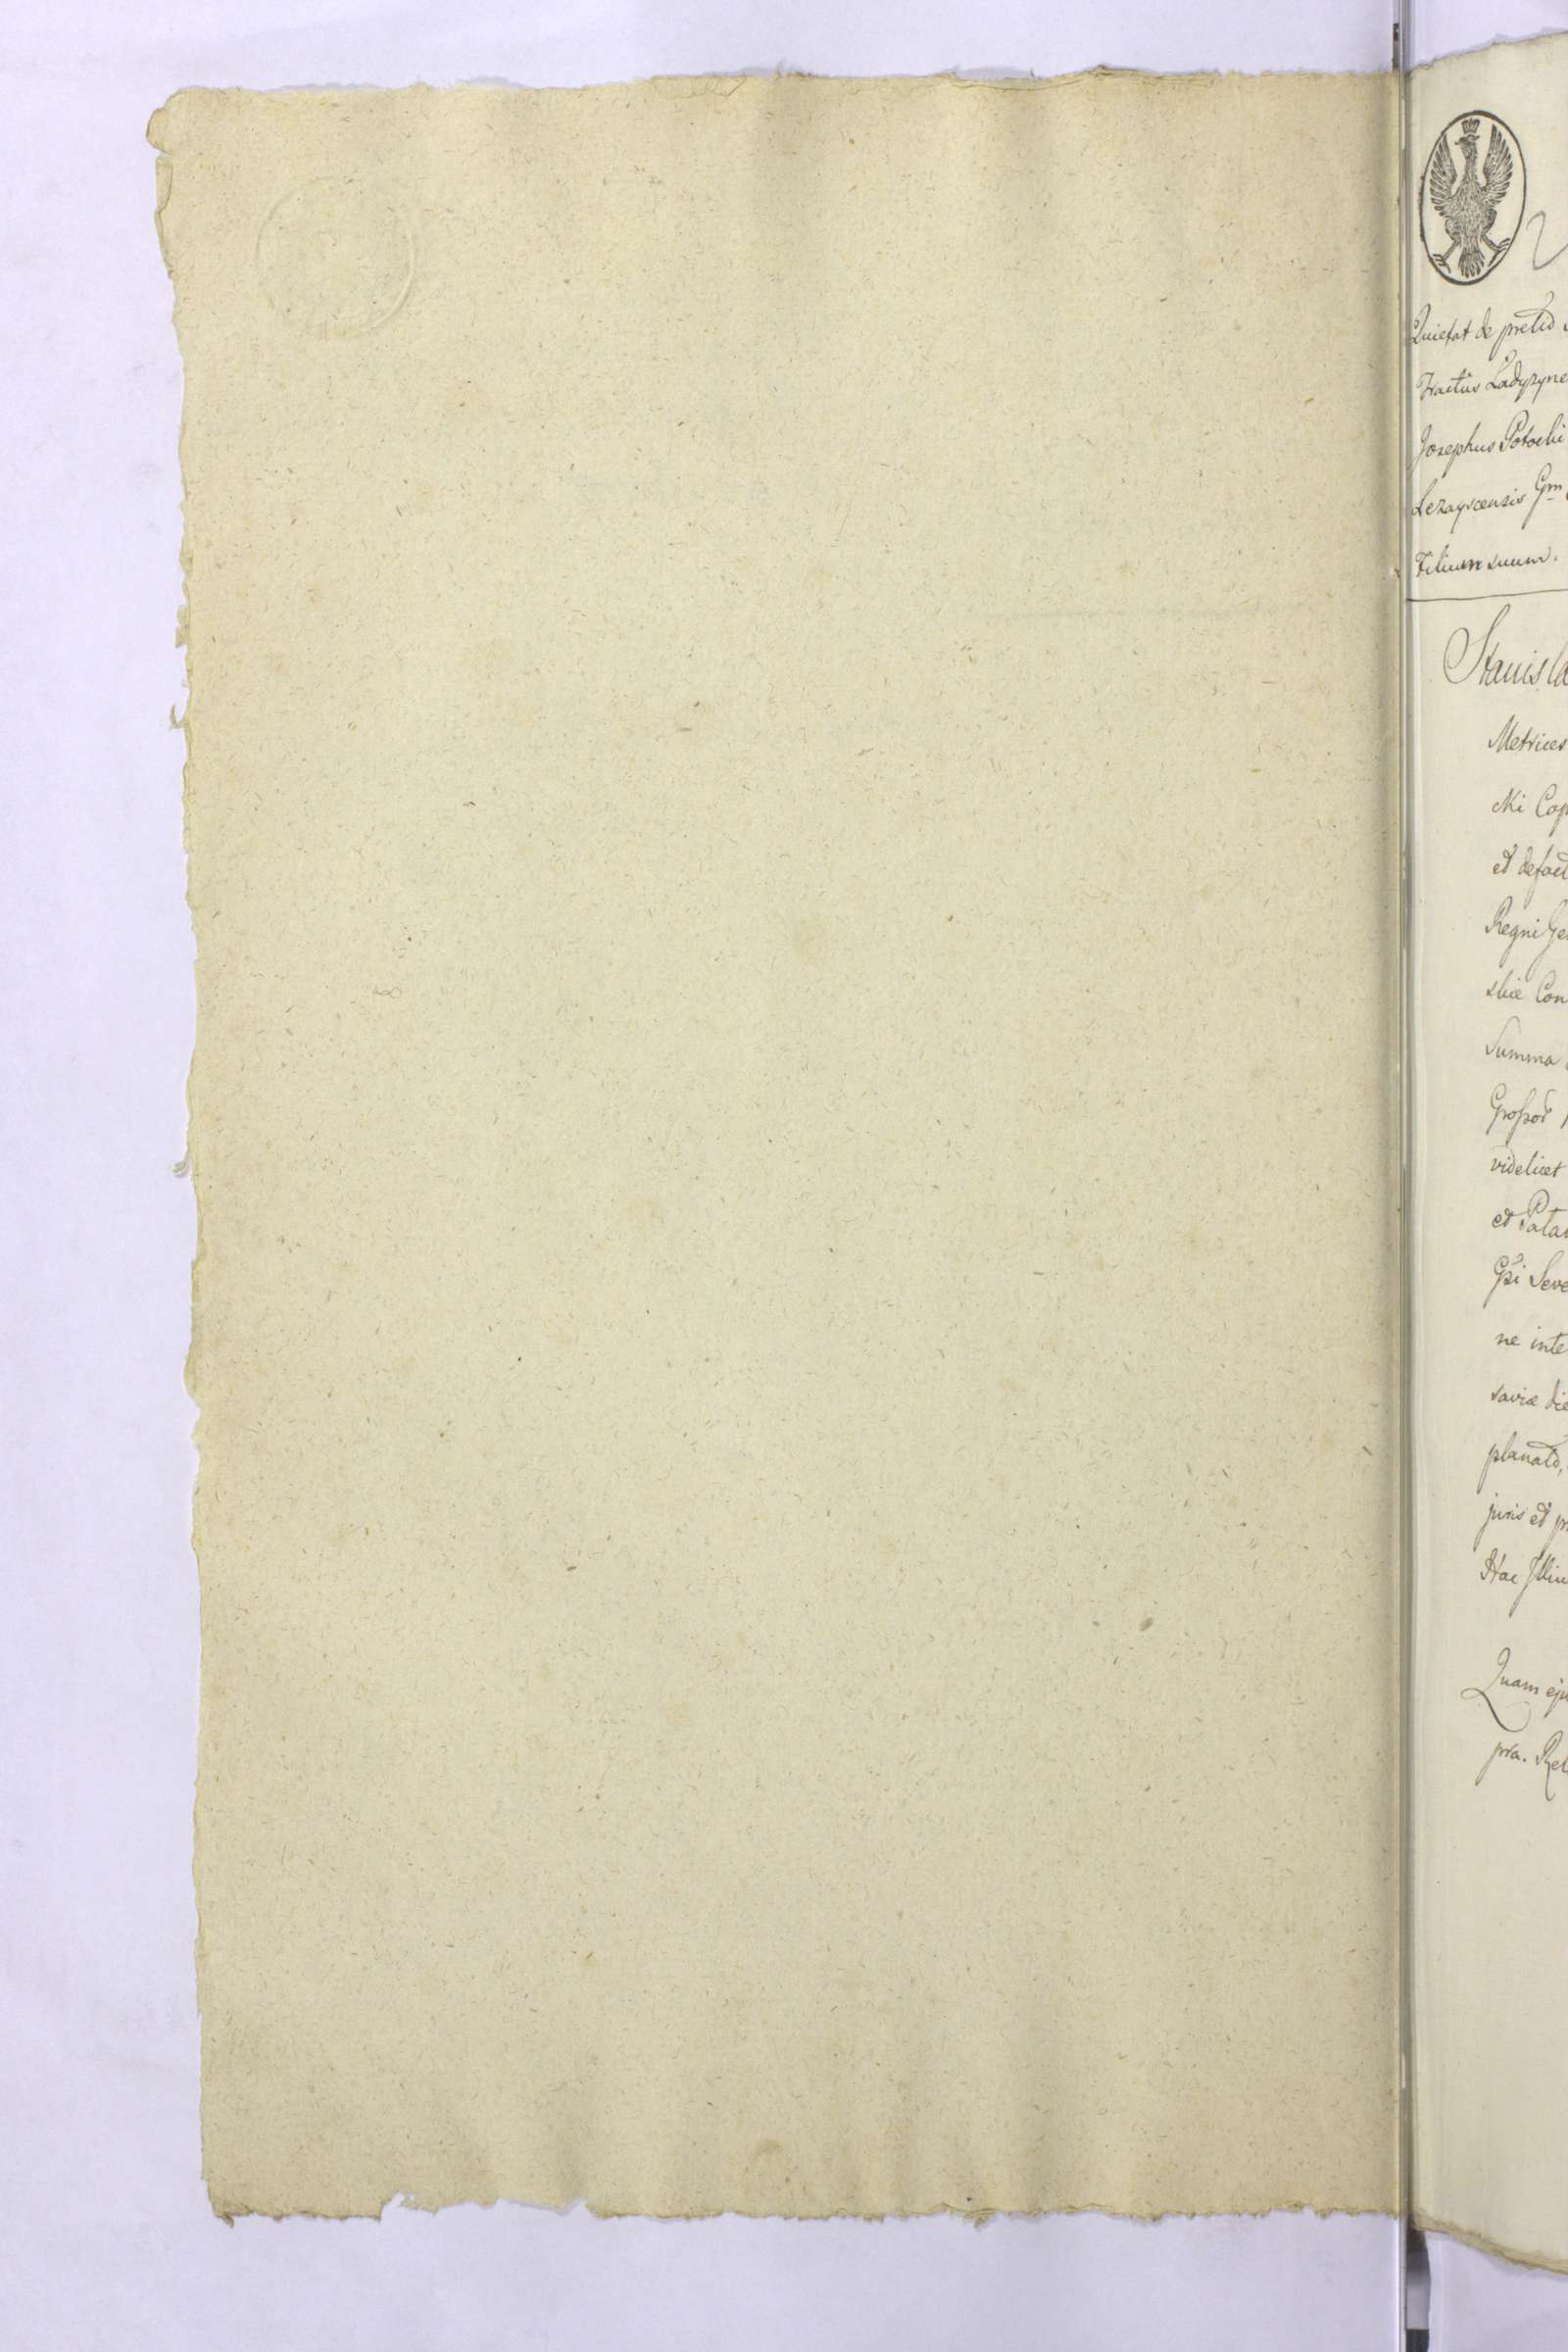 Quietat de pretio
Tractus Ladyzyne
Josephus Potocki
Lezayscensis Gm
Filium suum.
Stanisla
Metrices
cki Cap
et defact
Regni Ge
skie Con
Summa
Grossor
videlicet
et Pala
Gsi Seve
ne inte
saviæ die
planato,
juris et pr
Hac
Quam eju
pra. Rel